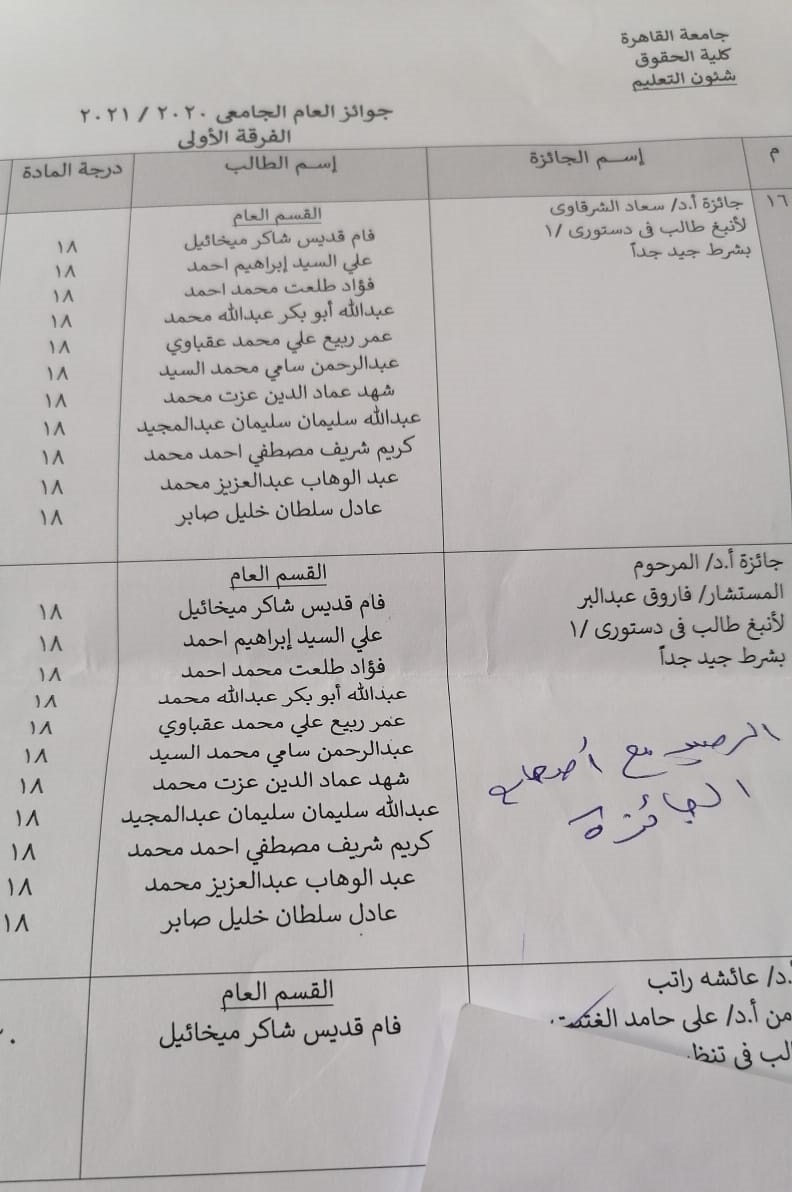 جامعة القاهرة
كلية الحقوق
شئون التعليم
جوائز العام الجامعى ٢٠٢٠ / ٢٠٢١
الفرقة الأولى
م
إسم الجائزة
إسم الطالب
درجة المادة
١٦
جائزة أ.د/ سعاد الشرقاوى
لأنبغ طالب فى دستورى /١
بشرط جيد جداً
القسم العام
فام قديس شاكر ميخائيل ١٨
علي السيد إبراهيم احمد ١٨
فؤاد طلعت محمد احمد ١٨
عبدالله أبو بكر عبدالله محمد ١٨
عمر ربيع علي محمد عقباوي ١٨
عبدالرحمن سامي محمد السيد ١٨
شهد عماد الدين عزت محمد ١٨
عبدالله سليمان سليمان عبدالمجيد ١٨
كريم شريف مصطفي احمد محمد ١٨
عبد الوهاب عبدالعزيز محمد ١٨
عادل سلطان خليل صابر ١٨
جائزة أ.د/ المرحوم
المستشار/ فاروق عبدالبر
لأنبغ طالب فى دستورى /١
بشرط جيد جداً
القسم العام
فام قديس شاكر ميخائيل ١٨
علي السيد إبراهيم احمد ١٨
فؤاد طلعت محمد احمد ١٨
عبدالله أبو بكر عبدالله محمد ١٨
عمر ربيع علي محمد عقباوي ١٨
عبدالرحمن سامي محمد السيد ١٨
شهد عماد الدين عزت محمد ١٨
عبدالله سليمان سليمان عبدالمجيد ١٨
كريم شريف مصطفي احمد محمد ١٨
عبد الوهاب عبدالعزيز محمد ١٨
عادل سلطان خليل صابر ١٨
الرصيد مع أصحاب
الجائزة
.د/ عائشه راتب
من أ.د/ على حامد
لب فى
القسم العام
فام قديس شاكر ميخائيل